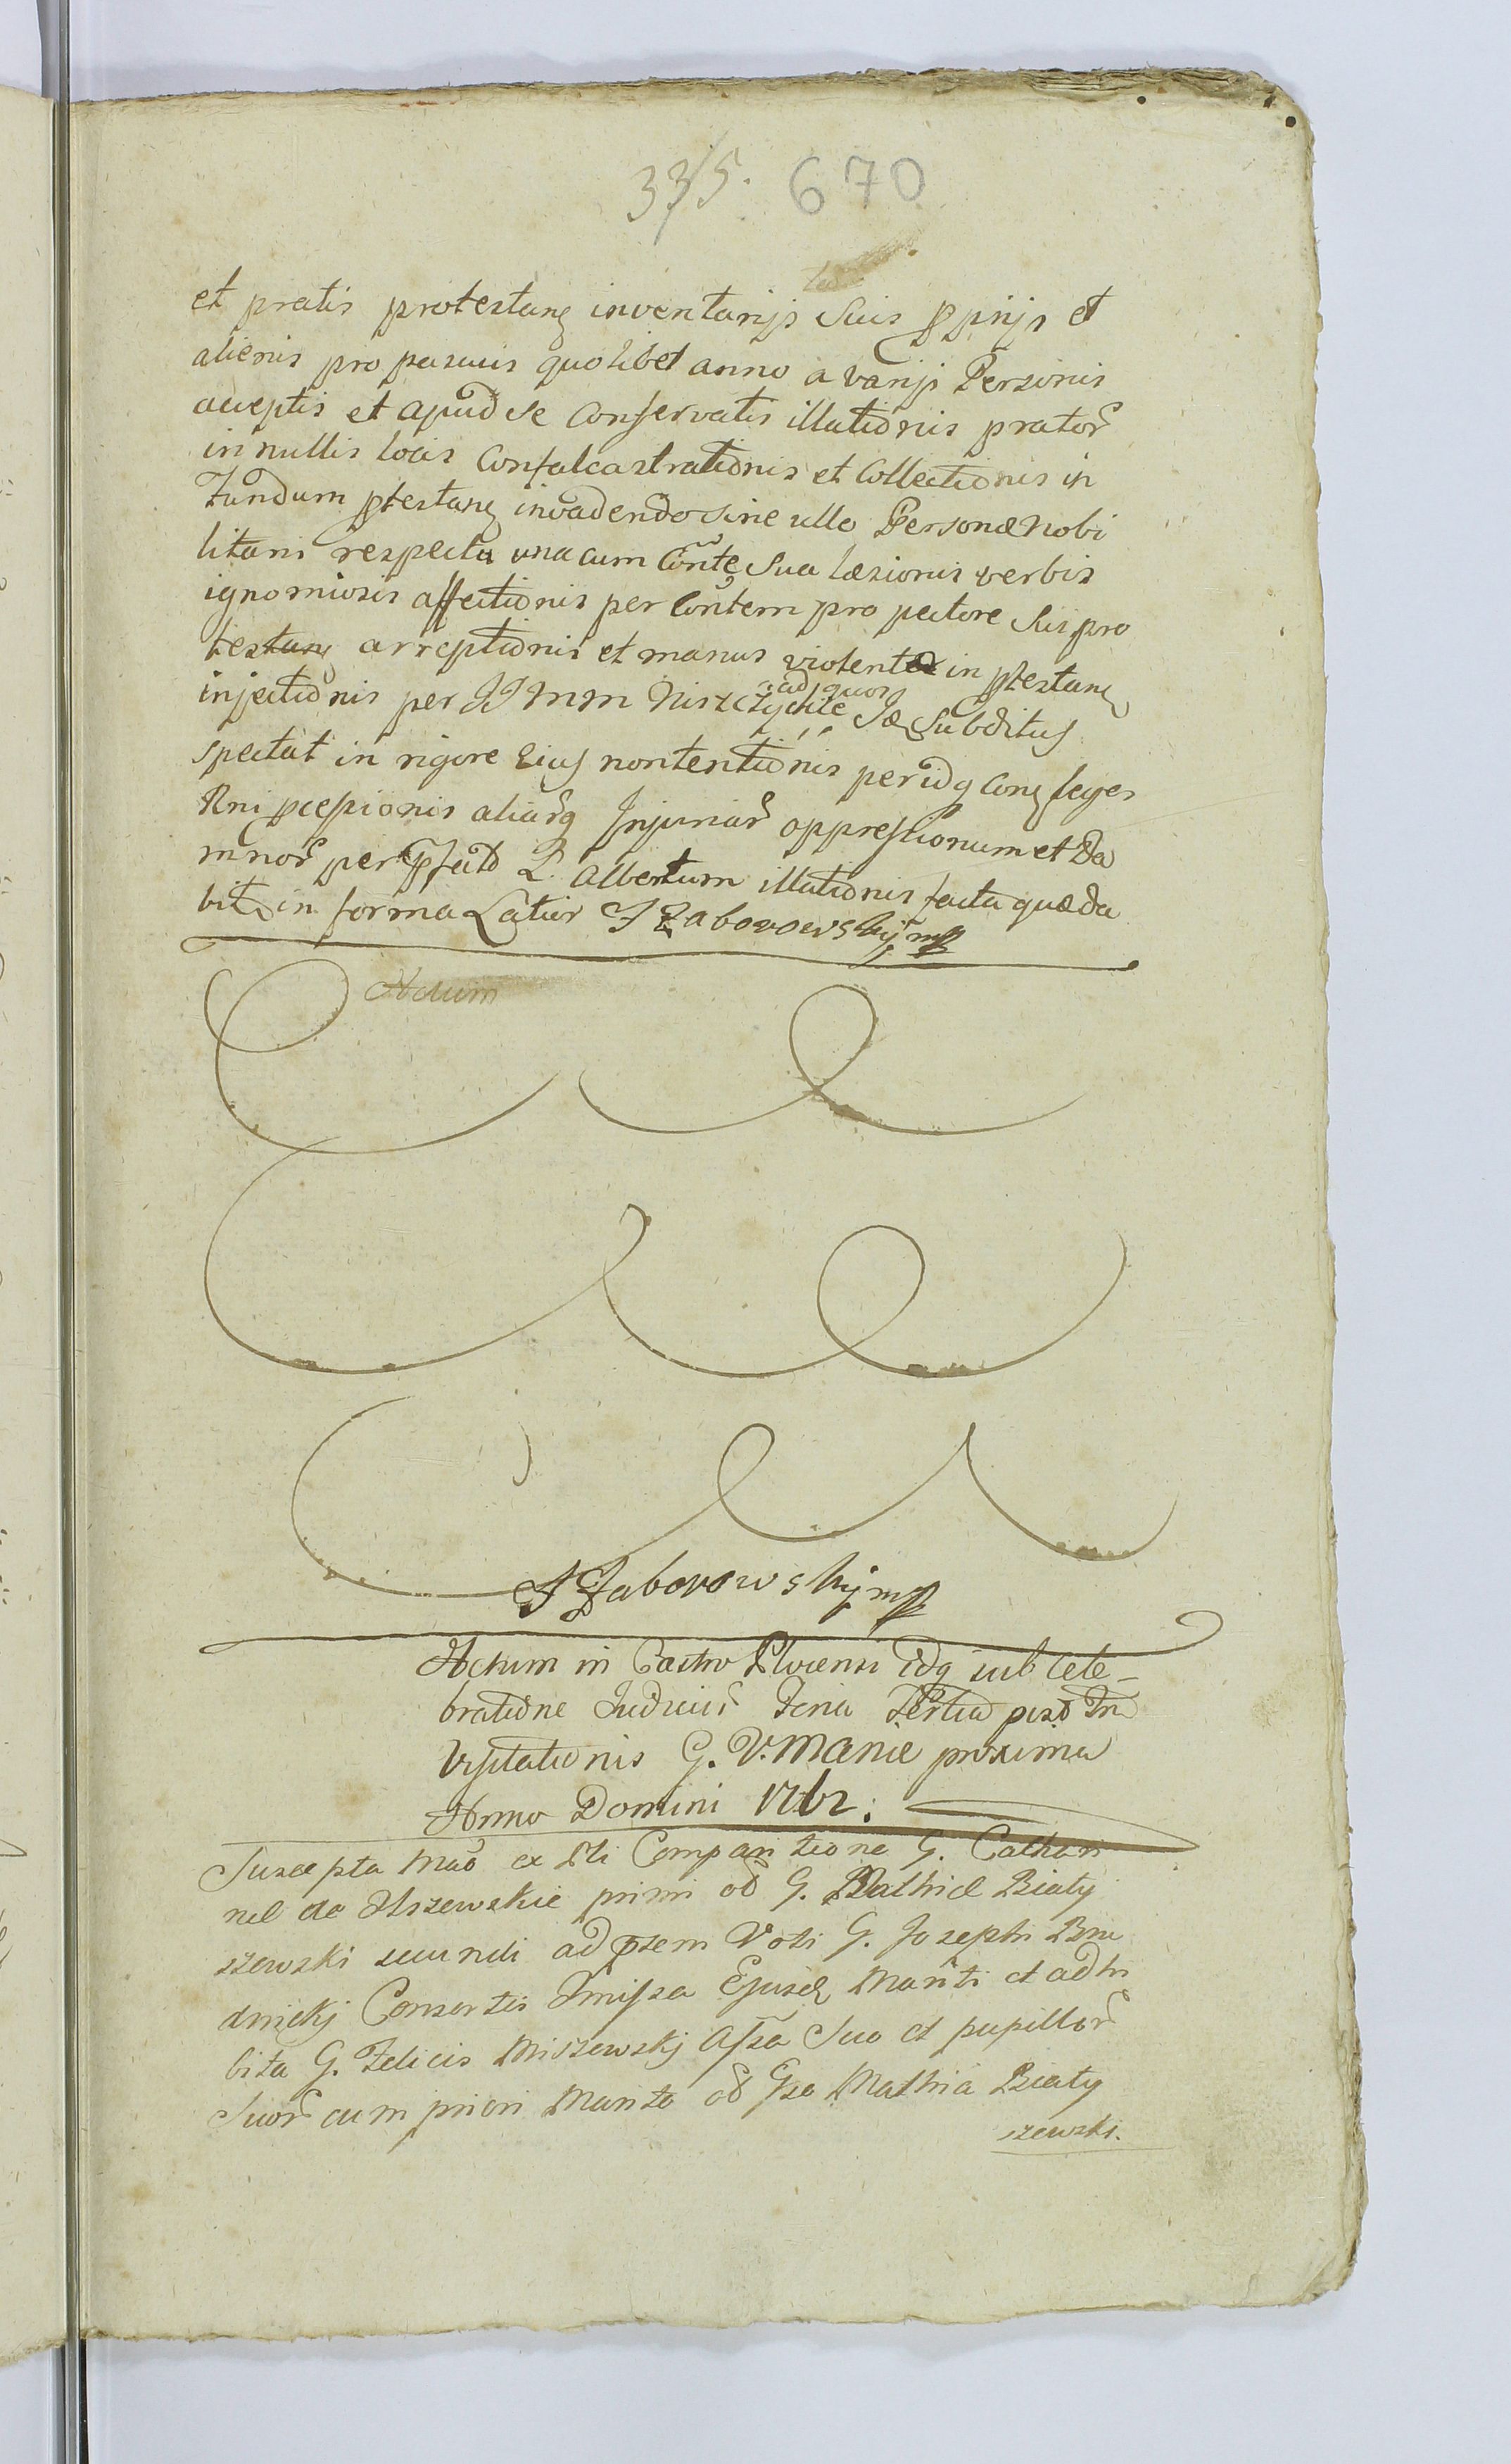 335. 670
et pratis protestang inventarijs Suis pprijs et
alienis pro pascuis quolibet anno a varijs Personis
acceptis et apud se conservatis illationis prator
in nullis locis Confalcastrationis et Collectionis in
Fundum ptestang invadendo sine ullo Personæ Nobi
litaris respectu una cum Conte Sua læsionis verbis
ignomiosis affectionis per Contem pro pectore Suis pro
testang arreptionis et manus violentæ in ptestang
injectionis per JJ MM Niszczychte ad quos Jæ Subditus
spectat in rigore Ejus nontentionis per idq Cong leges
Rni pcessionis aliarq Injuriar oppressionum et Da
mnor per Pfato L. Albertum illationis facta quæ da
bit in forma Latior J Zaborowskij mp
Actum
J Zaborowskij mp
Actum in Castro Plocensi idq sub Cele-
bratione Judicior Feria Tertia post Fm
Visitationis G. V. Mariæ proxima
Anno Domini 1762.
Suscepta Mao ex Pti Comparitione G. Cathari
næ de Ilszewskie primi od G. Mathiæ Biały
szewski secundi ad psem Voti G. Josephi Bru
dnickj Consortis Imissa Ejusd Mariti et adhi
bita G. Felicis Miszewskj Assa Suo et pupillor
Suor cum priori Marito od Gso Mathia Biały
szewski.